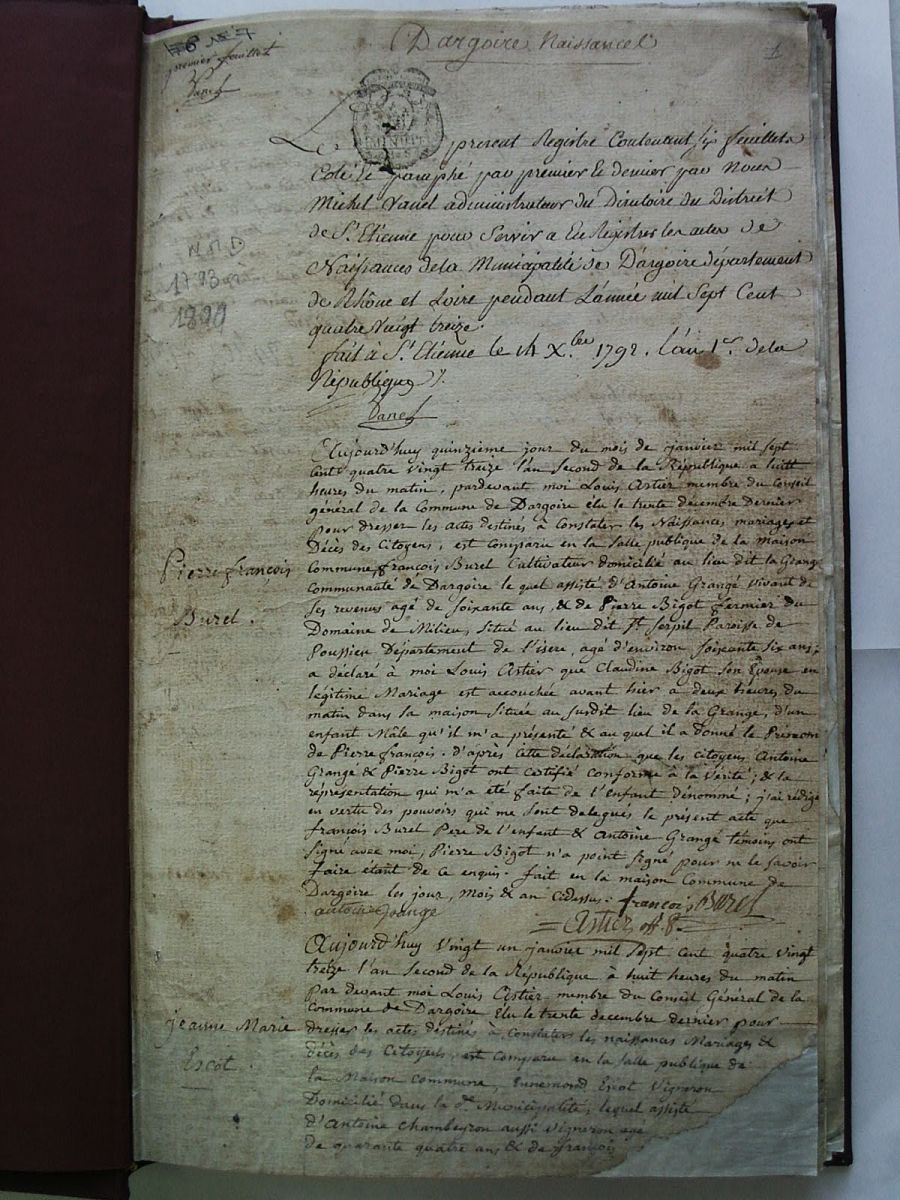 Dargoire Naissances
1
premier feuillet
Vanel
MINUTE
1793
1890
Le present Registre Contenant six feuillets
Coté et paraphé par premier et dernier par Nous
Michel Vanel administrateur du Directoire du District
de St. Etienne pour Servir a Enregistrer les actes de
Naissances de la Municipalité de Dargoire département
de Rhône et Loire pendant L'année mil Sept Cent
quatre Vingt treize.
fait à St. Etienne le 14 Xbre 1792. l'an 1er de la
République
Vanel
Aujourd'huy quinzieme jour du mois de janvier mil sept
Cent quatre vingt treize l'an Second de la République a huit
heures du matin, pardevant moi Louis Astier membre du Conseil
général de la Commune de Dargoire élu le trente décembre Dernier
pour dresser les actes destinés à Constater les Naissances mariages et
Décès des Citoyens, est comparu en la Salle publique de la maison
Commune, françois Burel Cultivateur domicilié au lieu dit la Grange
Communauté de Dargoire le quel assisté d'Antoine Grangé vivant de
Ses revenus agé de soixante ans, & de Pierre Bigot fermier du
Domaine de Milieu, Situé au lieu dit Paroisse de
Poussieu Département de l'isere, agé d'environ soixante six ans,
a déclaré à moi Louis Astier que Claudine Bigot Son Epouse en
légitime Mariage est accouchée avant hier à deux heures du
matin dans sa maison Située au susdit lieu de la Grange, d'un
enfant Mâle qu'il m'a présenté & au quel il a donné le Prénom
de Pierre françois. d'après Cette déclaration que les citoyens Antoine
Grangé & Pierre Bigot ont certifié conforme à la Vérité; & la
représentation qui m'a été faite de l'enfant dénommé; j'ai rédigé
en vertu des pouvoirs qui me sont delegués le présent acte que
françois Burel Pere de l'enfant & Antoine Grangé témoins ont
Signé avec moi, Pierre Bigot n'a point signé pour ne le savoir
faire étant de ce enquis. fait en la maison Commune de
Dargoire les jour, mois & an Cidessus. francois Burel
antoine Grange
Astier off. P.
Pierre françois
Burel.
Aujourd'huy Vingt un janvier mil Sept Cent quatre Vingt
treize l'an Second de la République à huit heures du matin
par devant moi Louis Astier membre du Conseil Général de la
Commune de Dargoire Elu le trente decembre dernier pour
dresser les actes destinés à Constater les naissances Mariages &
décès des Citoyens, est Comparu en la salle publique de
la Maison commune, Ennemond Escot Vigneron
Domicilié dans la de. Municipalité, lequel assisté
d'Antoine Chambeyron aussi vigneron age
de quarante quatre ans & de françois
jeanne Marie
Escot.